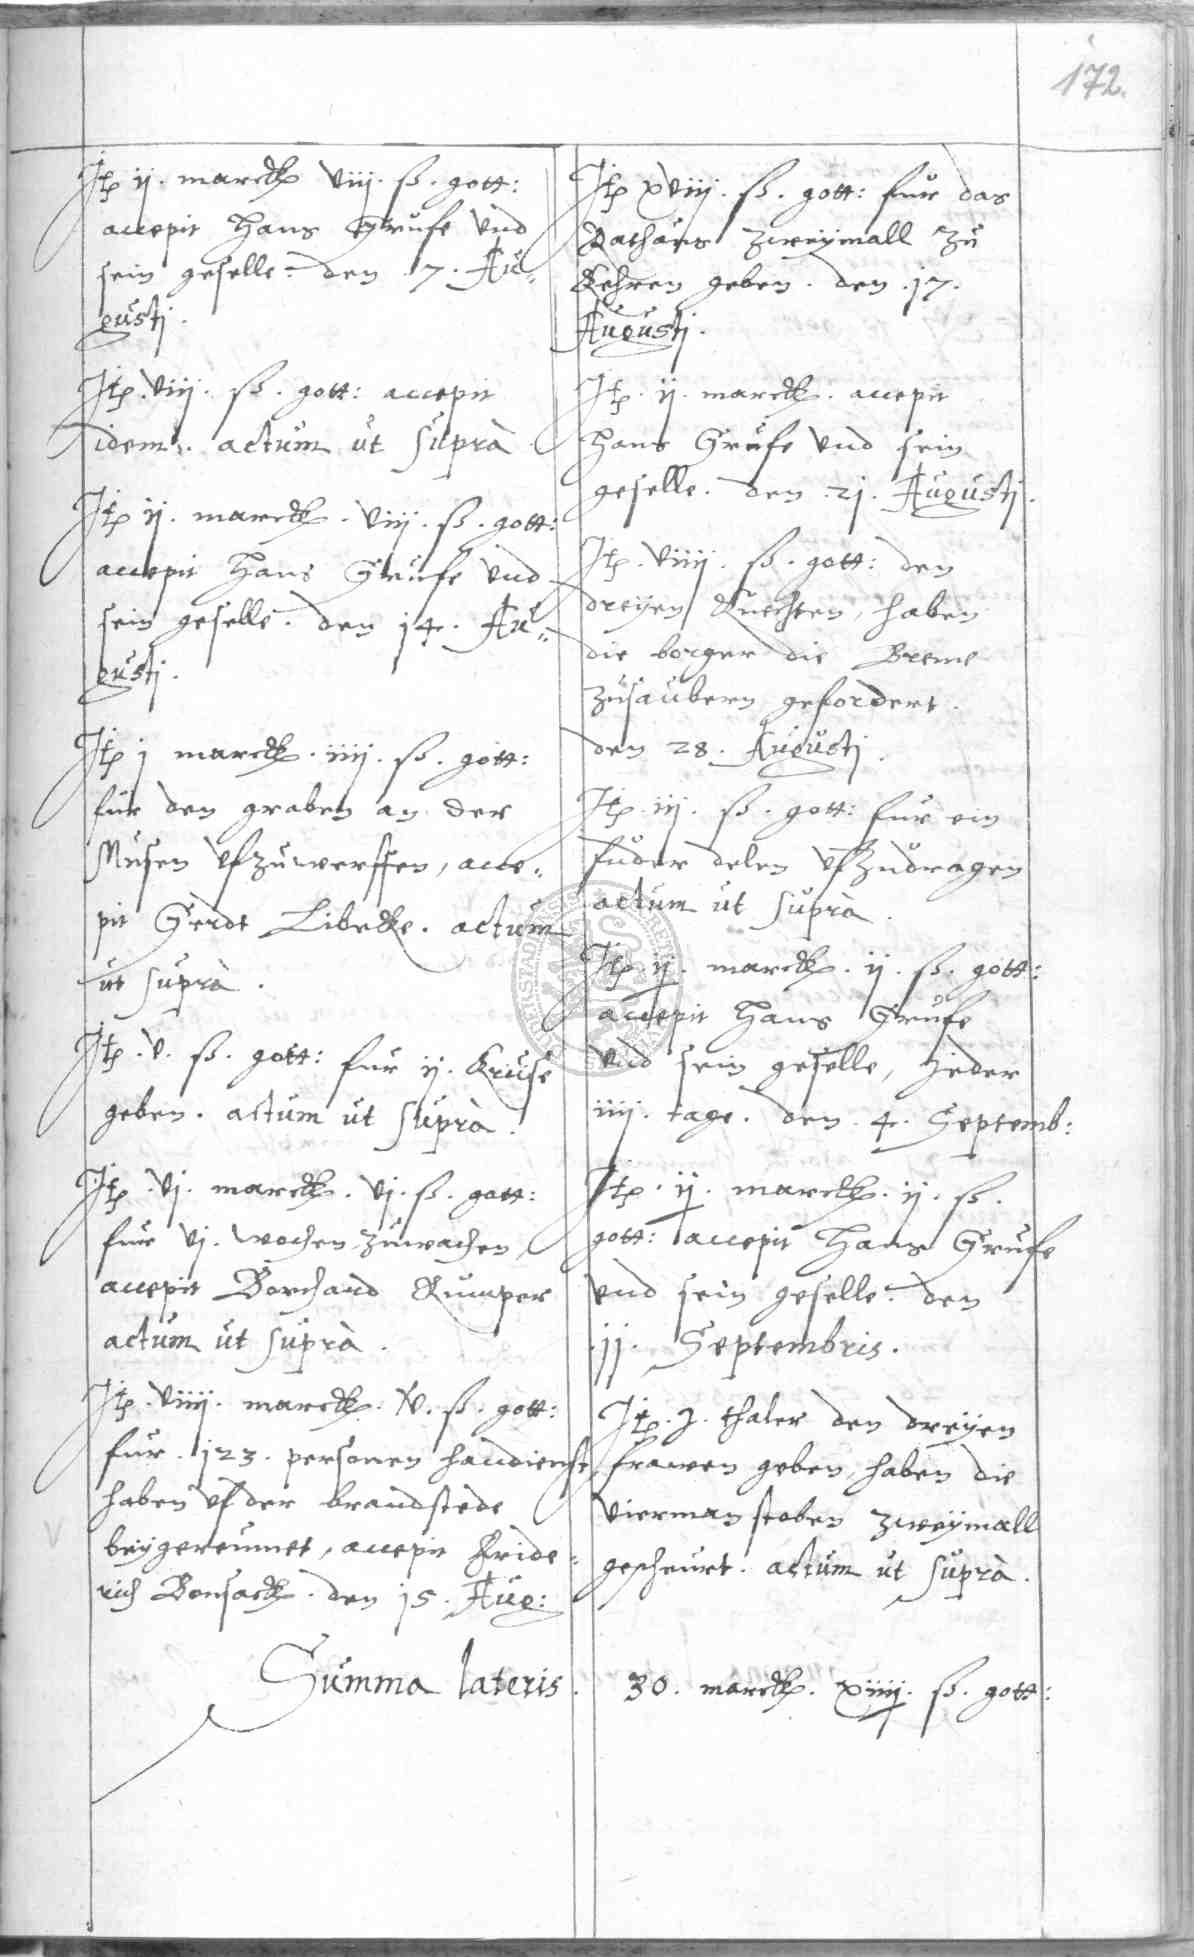 172.
Itp ij. marck viij. ß. gott:
accepit Hans Grufe und
sein geselle. den 7. Au=
gustj.
Itp. viij. ß. gott: accepit
idem. actum ut suprà
Itp ij. marck. viij. ß. gott:
accepit Hans Grufe und
sein geselle. den 14. Au=
gustj.
Itp j marck. iiij. ß. gott:
fur den graben an der
Musen ufzuwerffen, acce=
pit Gerdt Libecke. actum
ut suprà.
Itp. v. ß. gott: fur ij. Kruse
geben. actum ut suprà.
Itp. vj. marck. vj. ß. gott:
fur vj. wochen zuwachen
accepit Borchard Kumper
actum ut suprà.
Itp. viiij. marck. ß. gott:
fur 123. personen handienst
haben uf der brandstede
beygereumet, accepit Fride=
rich Bonsack. den 15. Aug:
Itp xviij. ß. gott: fur das
Rathaus zweymall zu
Kehren geben. den 17.
Augustj.
Itp. ij. marck. accepit
Hans Grufe und sein
geselle. den 21. Augustj.
Itp. viiij. ß. gott: den
dreyen Knechten, haben
die borger die Breme
zusaubern gefordert.
den 28. Augustj.
Itp. iij. ß. gott: fur ein
fuder delen ufzudragen
actum ut suprà.
Itp ij. marck. ij. ß. gott:
accepit Hans Grufe
und sein geselle, jeder
iiij. tage. den 4. Septemb:
Itp. ij. marck. ij. ß.
gott: accepit Hans Grufe
und sein geselle. den
11. Septembris.
Itp. j. thaler den dreyen
frawen geben, haben die
vierman stoben zweymall
gescheurt. actum ut suprà.
Summa lateris. 30. marck. xiiij. ß. gott: